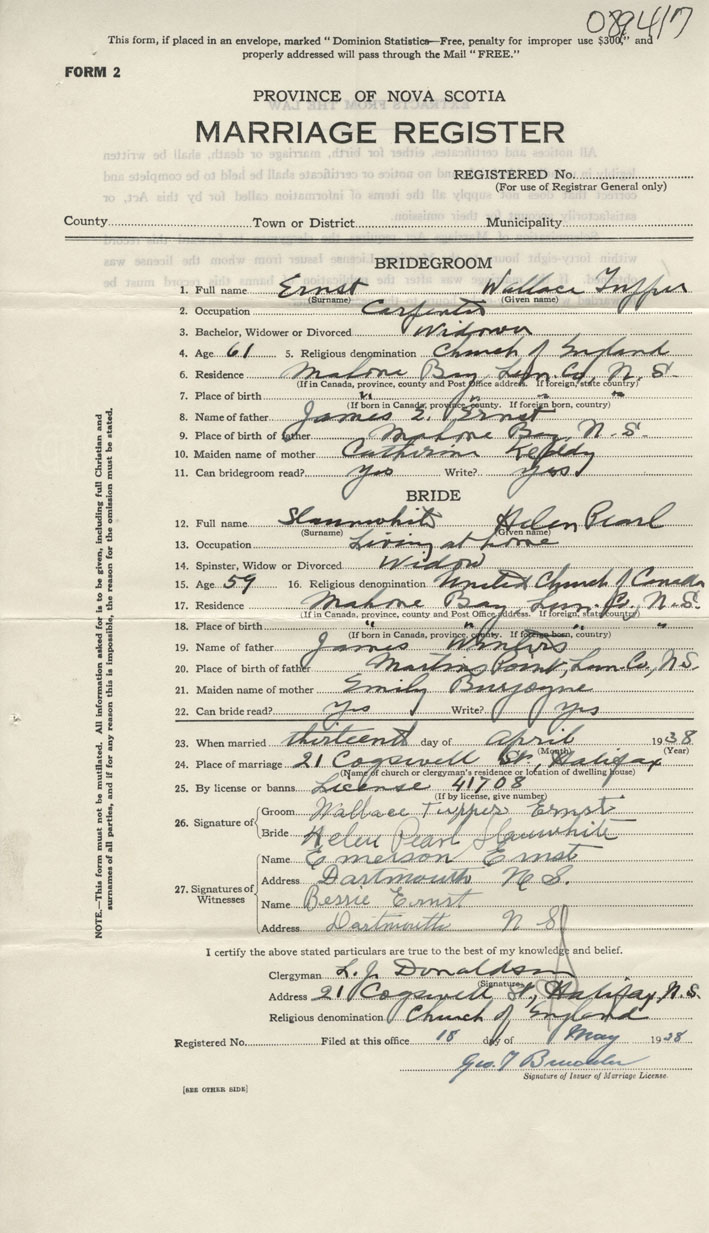 089417
This form, if placed in an envelope, marked "Dominion Statistics—Free, penalty for improper use $300," and
properly addressed will pass through the Mail "FREE."
FORM 2
PROVINCE OF NOVA SCOTIA
MARRIAGE REGISTER
REGISTERED No.
(For use of Registrar General only)
County Town or District Municipality
BRIDEGROOM
1. Full name Ernst Wallace Tupper
(Surname) (Given name)
2. Occupation Carpenter
3. Bachelor, Widower or Divorced Widower
4. Age 61 5. Religious denomination Church of England
6. Residence Mahone Bay, Lun. Co., N.S.
(If in Canada, province, county and Post Office address. If foreign, state country)
7. Place of birth " " " "
(If born in Canada, province, county. If foreign born, country)
8. Name of father James E. Ernst
9. Place of birth of father Mahone Bay, N.S.
10. Maiden name of mother Catherine
11. Can bridegroom read? Yes Write? Yes
BRIDE
12. Full name Slaunwhite Helen Pearl
(Surname) (Given name)
13. Occupation Living at home
14. Spinster, Widow or Divorced Widow
15. Age 59 16. Religious denomination United Church of Canada
17. Residence Mahone Bay, Lun. Co., N.S.
(If in Canada, province, county and Post Office address. If foreign, state country)
18. Place of birth " " " "
(If born in Canada, province, county. If foreign born, country)
19. Name of father James
20. Place of birth of father Martins Point, Lun. Co., N.S.
21. Maiden name of mother Emily Burgoyne
22. Can bride read? Yes Write? Yes
23. When married thirteenth day of April 1938
(Month) (Year)
24. Place of marriage 21 Cogswell St., Halifax
(Name of church or clergyman's residence or location of dwelling house)
25. By license or banns License 41708
(If by license, give number)
26. Signature of Groom Wallace Tupper Ernst
Bride Helen Pearl Slaunwhite
27. Signatures of Witnesses Name Emerson Ernst
Address Dartmouth N.S.
Name Bessie Ernst
Address Dartmouth N S
I certify the above stated particulars are true to the best of my knowledge and belief.
Clergyman L. J. Donaldson
(Signature)
Address 21 Cogswell St., Halifax, N.S.
Religious denomination Church of England
Registered No. Filed at this office 18 day of May 1938
Geo. T
Signature of Issuer of Marriage License.
[SEE OTHER SIDE]
NOTE.—This form must not be mutilated. All information asked for is to be given, including full Christian and
surnames of all parties, and if for any reason this is impossible, the reason for the omission must be stated.